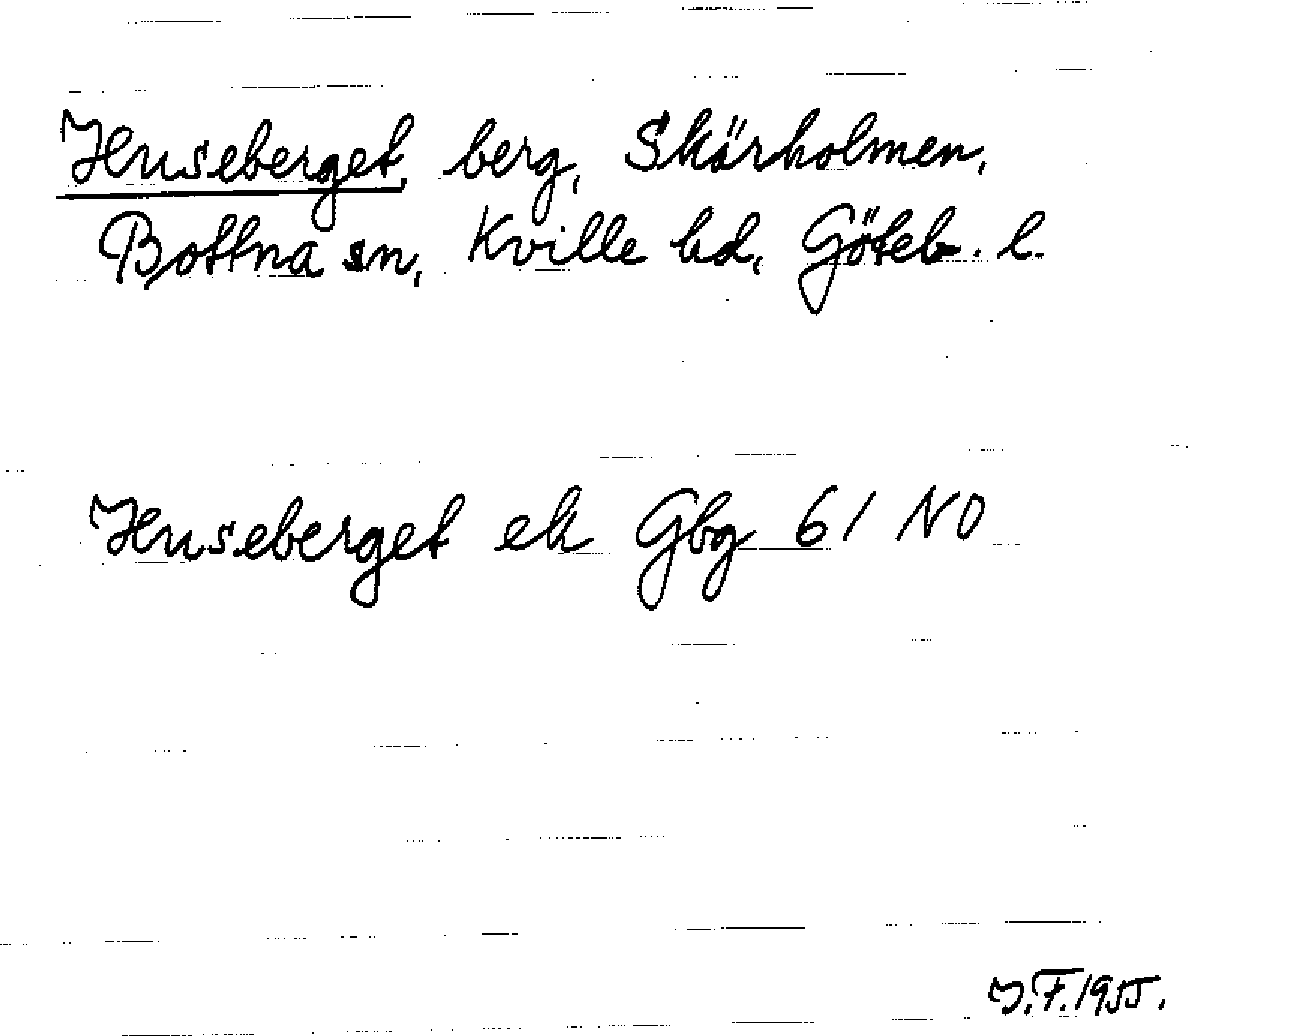 Huseberget, berg, Skärholmen,
Bottna sn, Kville hd, Göteb. l.
Huseberget ek Gbg 61 NO
I.F. 1955.